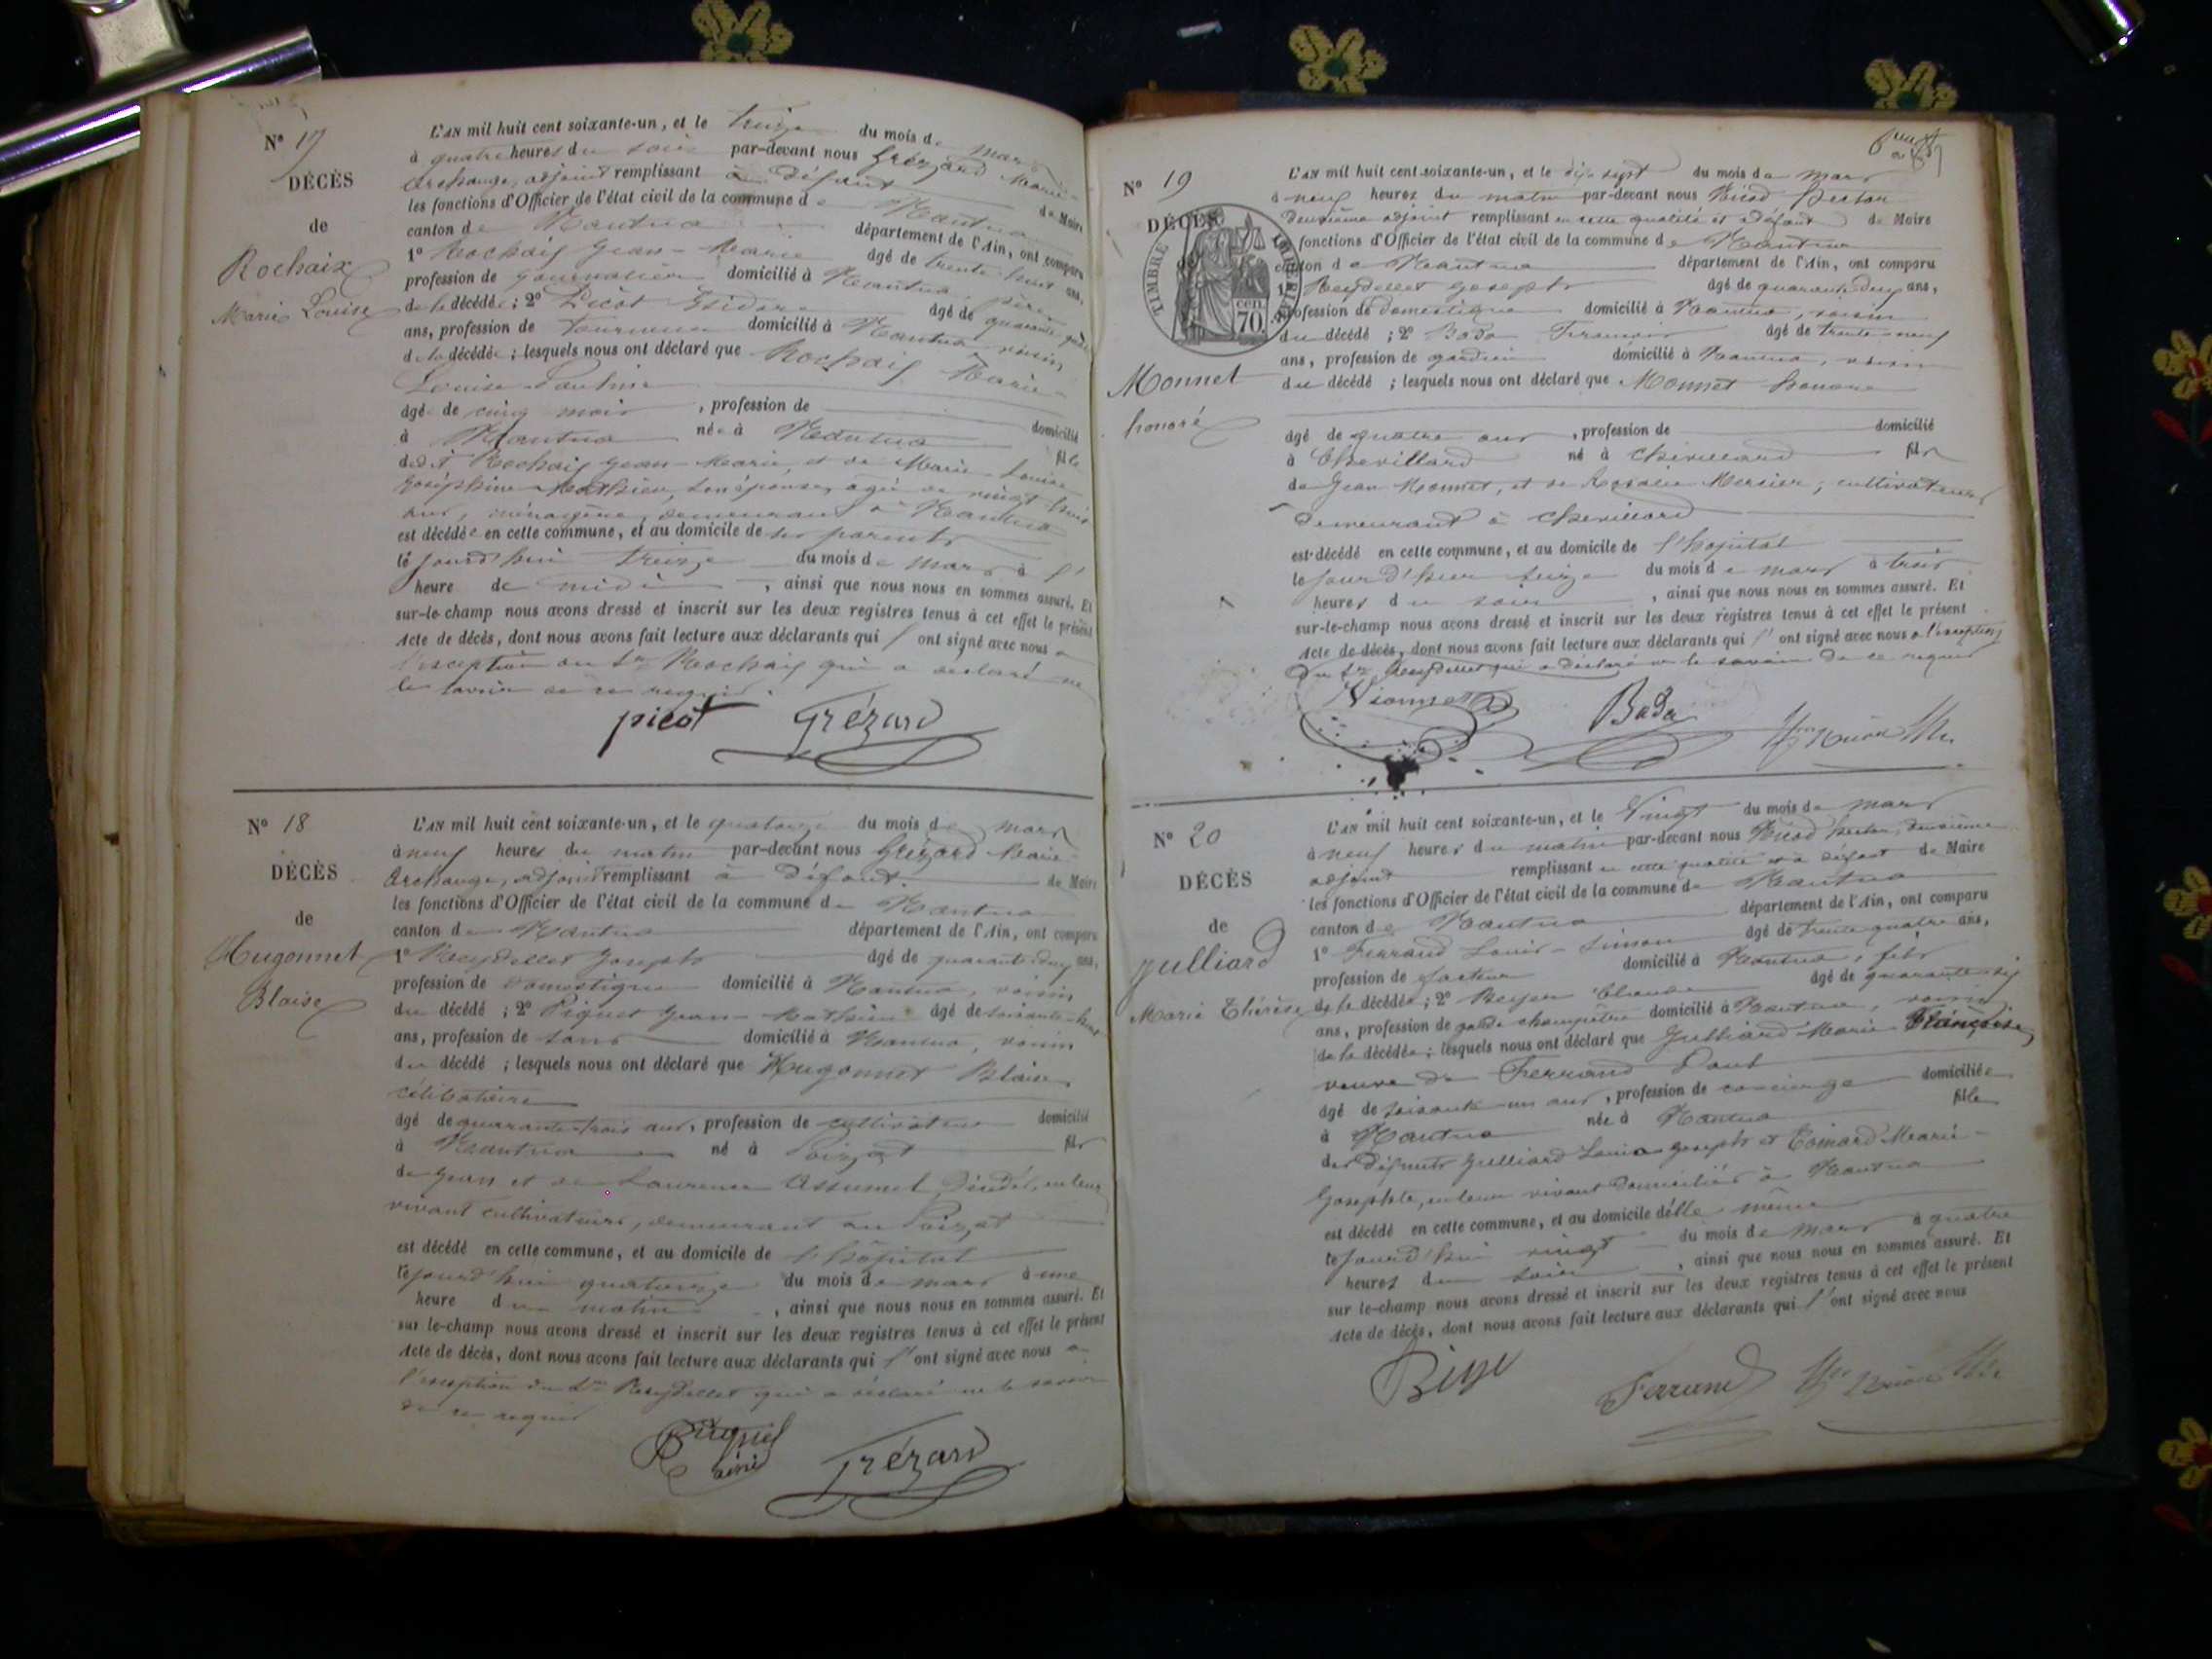 N° 17
DÉCÈS
de
Rochaix
Marie Louise
L'AN mil huit cent soixante-un, et le treize du mois de mars
à quatre heures du soir par-devant nous Grézard Marie-
Archange, adjoint remplissant à défaut de Maire
les fonctions d'Officier de l'état civil de la commune de Nantua
canton de Nantua département de l'Ain, ont comparu
1° Rochaix Jean-Marie âgé de trente-huit ans,
profession de journalier domicilié à Nantua, père
de la décédée ; 2° Picot Isidore âgé de quarante
ans, profession de tourneur domicilié à Nantua voisin
de la décédée ; lesquels nous ont déclaré que Rochaix Marie-
Louise-Pauline
âgée de cinq mois , profession de domicilié
à Nantua née à Nantua fille
dudit Rochaix Jean-Marie, et de Marie-Louise
Joséphine Mathieu, son épouse, agée de vingt-trois
ans, ménagère, demeurant à Nantua
est décédée en cette commune, et au domicile de ses parents
le jourd'hui treize du mois de mars à l'
heure de midi , ainsi que nous nous en sommes assuré. Et
sur-le-champ nous avons dressé et inscrit sur les deux registres tenus à cet effet le présent
Acte de décès, dont nous avons fait lecture aux déclarants qui l'ont signé avec nous à
l'exception du Sr Rochaix qui a déclaré ne
le savoir de ce requis.
picot Grézard
N° 18
DÉCÈS
de
Hugonnet
Blaise
L'AN mil huit cent soixante-un, et le quatorze du mois de mars
à neuf heures du matin par-devant nous Grézard Marie-
Archange, adjoint remplissant à défaut de Maire
les fonctions d'Officier de l'état civil de la commune de Nantua
canton de Nantua département de l'Ain, ont comparu
1° Reydellet Joseph âgé de quarante-deux ans,
profession de domestique domicilié à Nantua, voisin
du décédé ; 2° Piquet Jean-Mathieu âgé de soixante-huit
ans, profession de sans domicilié à Nantua, voisin
du décédé ; lesquels nous ont déclaré que Hugonnet Blaise
célibataire
âgé de quarante-trois ans, profession de cultivateur domicilié
à Nantua né à Poizat fils
de Jean et de Laurence Assumel, en leur
vivant cultivateurs, demeurant au Poizat
est décédé en cette commune, et au domicile de l'hôpital
le jourd'hui quatorze du mois de mars à une
heure du matin , ainsi que nous nous en sommes assuré. Et
sur le-champ nous avons dressé et inscrit sur les deux registres tenus à cet effet le présent
Acte de décès, dont nous avons fait lecture aux déclarants qui l'ont signé avec nous à
l'exception du Sr Reydellet qui a déclaré ne le savoir
de ce requis
Piquet
ainé Grézard
N° 19
DÉCÈS
TIMBRE IMPÉRIAL
70 cen
Monnet
honoré
L'AN mil huit cent soixante-un, et le dix sept du mois de mars
à neuf heures du matin par-devant nous Hector
deuxième adjoint remplissant en cette qualité et à défaut de Maire
fonctions d'Officier de l'état civil de la commune de Nantua
canton de Nantua département de l'Ain, ont comparu
1° Reydellet Joseph âgé de quarante-deux ans,
profession de domestique domicilié à Nantua, voisin
du décédé ; 2° Bada François âgé de trente-neuf
ans, profession de gardien domicilié à Nantua, voisin
du décédé ; lesquels nous ont déclaré que Monnet honoré
âgé de quatre ans , profession de domicilié
à Chevillard né à Chevillard fils
de Jean Monnet, et de Rosalie Mercier, cultivateurs
demeurant à Chevillard
est décédé en cette commune, et au domicile de l'hopital
le jour d'hier seize du mois de mars à trois
heures du soir , ainsi que nous nous en sommes assuré. Et
sur-le-champ nous avons dressé et inscrit sur les deux registres tenus à cet effet le présent
Acte de décès, dont nous avons fait lecture aux déclarants qui l'ont signé avec nous à l'exception
du Sr Reydellet qui a déclaré ne le savoir de ce requis
Bada
N° 20
DÉCÈS
de
Julliard
Marie Thérèse
L'AN mil huit cent soixante-un, et le Vingt du mois de mars
à neuf heures du matin par-devant nous Hector, deuxième
adjoint remplissant en cette qualité et à défaut de Maire
les fonctions d'Officier de l'état civil de la commune de Nantua
canton de Nantua département de l'Ain, ont comparu
1° Ferrand Louis-Simon âgé de trente quatre ans,
profession de facteur domicilié à Nantua, fils
de la décédée ; 2° Claude âgé de quarante-six
ans, profession de garde champêtre domicilié à Nantua, voisin
de la décédée ; lesquels nous ont déclaré que Julliard Marie Françoise
veuve de Ferrand Paul
âgé de soixante-un ans , profession de concierge domiciliée
à Nantua née à Nantua fille
des défunts Julliard Louis-Joseph et Marie-
Josephte, en leur vivant domiciliés à Nantua
est décédé en cette commune, et au domicile d'elle même
le jourd'hui vingt du mois de mars à quatre
heures du soir , ainsi que nous nous en sommes assuré. Et
sur le-champ nous avons dressé et inscrit sur les deux registres tenus à cet effet le présent
Acte de décès, dont nous avons fait lecture aux déclarants qui l'ont signé avec nous
Ferrand